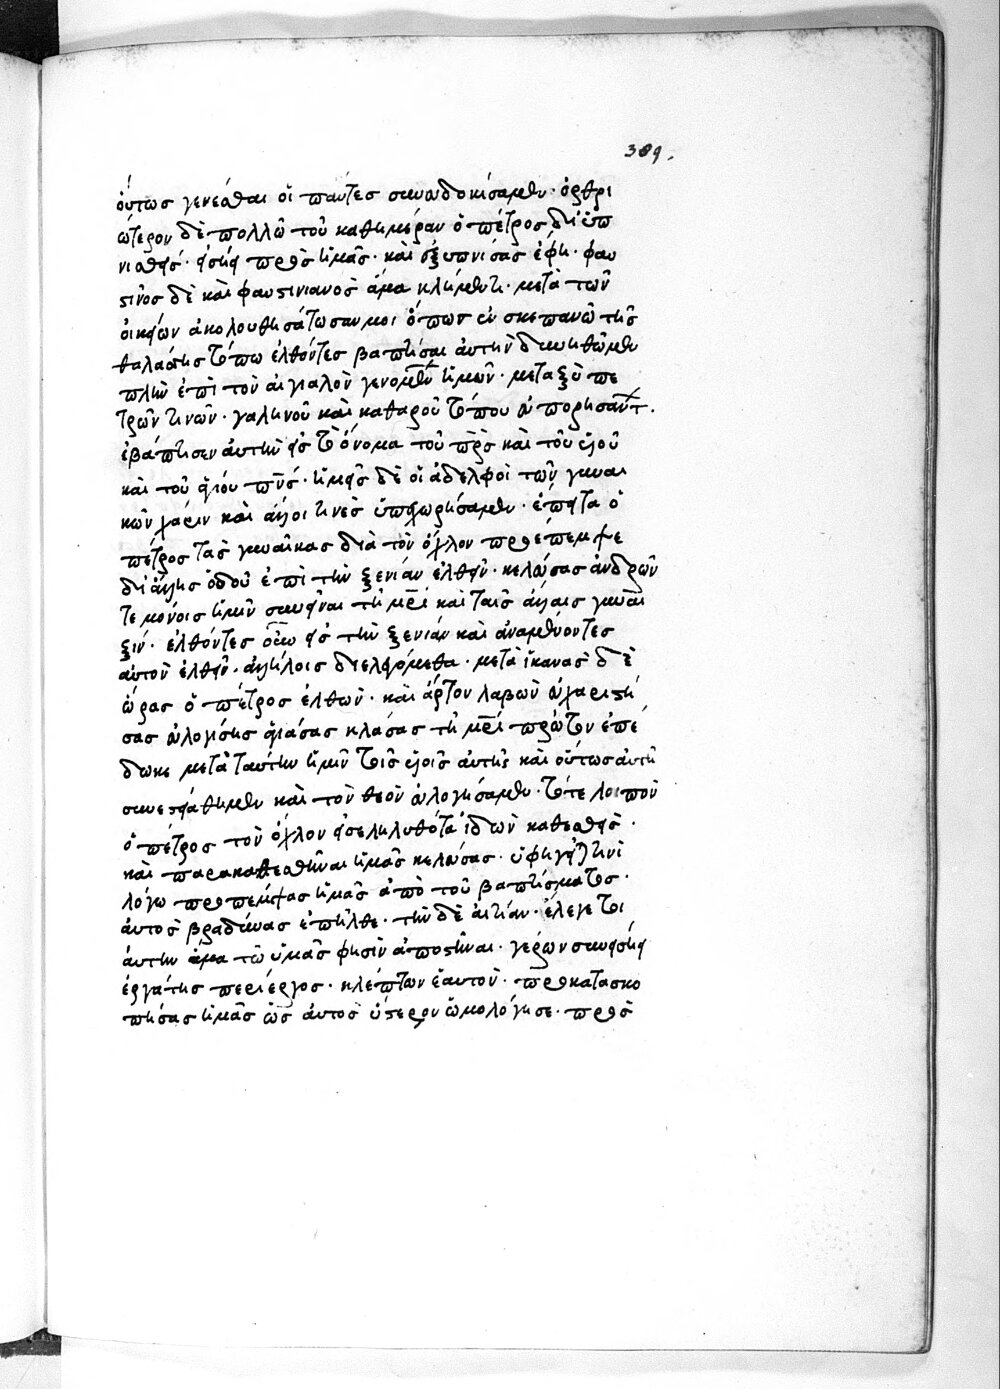 389.
οὕτως γενέσθαι οἱ πάντες συνωδοκίσαμεν· ὀρθρι
ώτερον δὲ πολλῶ τοῦ καθημέραν ὁ πέτρος διϋπ
νισθεὶς· εἰσῆει πρὸς ἡμᾶς· καὶ ἐξυπνίσας ἔφη· φαυ
στῖνος δὲ καὶ φαυστινιανὸς ἅμα κλήμεντι· μετὰ τῶν
οἰκείων ἀκολουθησάτωσαν μοι ὅπως ἐν σκεπανῶ τῆς
θαλάσσης τόπω ἐλθόντες βαπτίσαι αὐτὴν δυνηθῶμεν
πλὴν ἐπὶ τὸν αἰγιαλὸν γενομένων ἡμῶν· μεταξὺ πε
τρῶν τινῶν· γαληνοῦ καὶ καθαροῦ τόπου εὐπορησαντ.
ἐβάπτισεν αὐτὴν εἰς τὸ ὄνομα τοῦ πρς καὶ τοῦ υἱοῦ
καὶ τοῦ ἁγίου πνς· ἡμεῖς δὲ οἱ ἀδελφοὶ τῶν γυναι
κῶν χάριν καὶ ἄλλοι τινὲς ὑπεχωρήσαμεν· ἔπειτα ὁ
πέτρος τὰς γυναῖκας διὰ τὸν ὄχλον προέπεμψε
δι ἄλλης ὁδοῦ ἐπὶ τὴν ξενίαν ἐλθεῖν· κελεύσας ἀνδρῶν
τε μόνοις ἡμῖν συνεῖναι τῆ μρὶ καὶ ταῖς ἄλλαις γυναι
ξίν· ἐλθόντες οὖν εἰς τὴν ξενίαν καὶ ἀναμένοντες
αὐτὸν ἐλθεῖν· ἀλλήλοις διελεγόμεθα· μετὰ ἱκανὰς δὲ
ὥρας ὁ πέτρος ἐλθὼν· καὶ ἄρτον λαβὼν εὐχαριστή
σας εὐλογήσης ἁγιάσας κλάσας τῆ μρὶ πρῶτον ἐπέ
δωκε μετὰ ταύτην ἡμῖν τοῖς υἱοῖς αὐτῆς καὶ οὕτως αὐτῆ
συνεστιάθημεν καὶ τὸν θεὸν εὐλογήσαμεν· τότε λοιπὸν
ὁ πέτρος τὸν ὄχλον εἰσεληλυθότα ἰδὼν καθεσθεὶς·
καὶ παρακαθεσθῆναι ἡμᾶς κελεύσας· ὑφηγεῖτο τινὶ
λόγω προπέμψας ἡμᾶς ἀπὸ τοῦ βαπτίσματος·
αὐτὸς βραδύνας ἐπῆλθε· τὴν δὲ αἰτίαν· ἔλεγε τοι
αύτην ἅμα τῶ ὑμᾶς φησὶν ἀποστῆναι· γέρων συνεισήει
ἐργάτης περίεργος· κλέπτων ἑαυτὸν· προκατασκο
πήσας ἡμᾶς ὡς αὐτὸς ὕστερον ὡμολόγησε· πρὸς